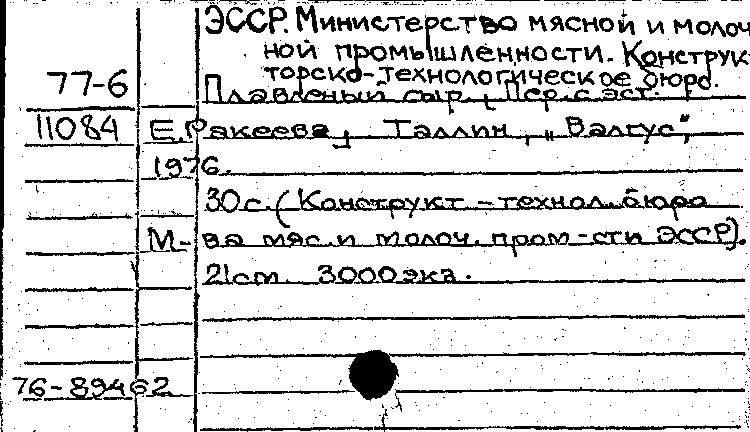 ЭССР. Министерство мясной и молоч
ной промышленности. Конструк
торско-технологическое бюро.
77-6 Плавленый сыр. Пер. с эст.
11084 Е. Ракеева, Таллин, „Валгус",
1976.
30 с. (Конструкт-технол. бюро
М-ва мяс. и молоч. пром-сти ЭССР).
21 cm 3000 экз.
76-89462